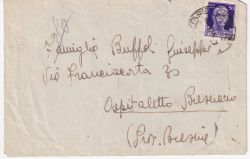 Famiglia Buffoli Giuseppe
Via Franciacorta 30
Ospitaletto Bresciano
(Prov. Brescia)